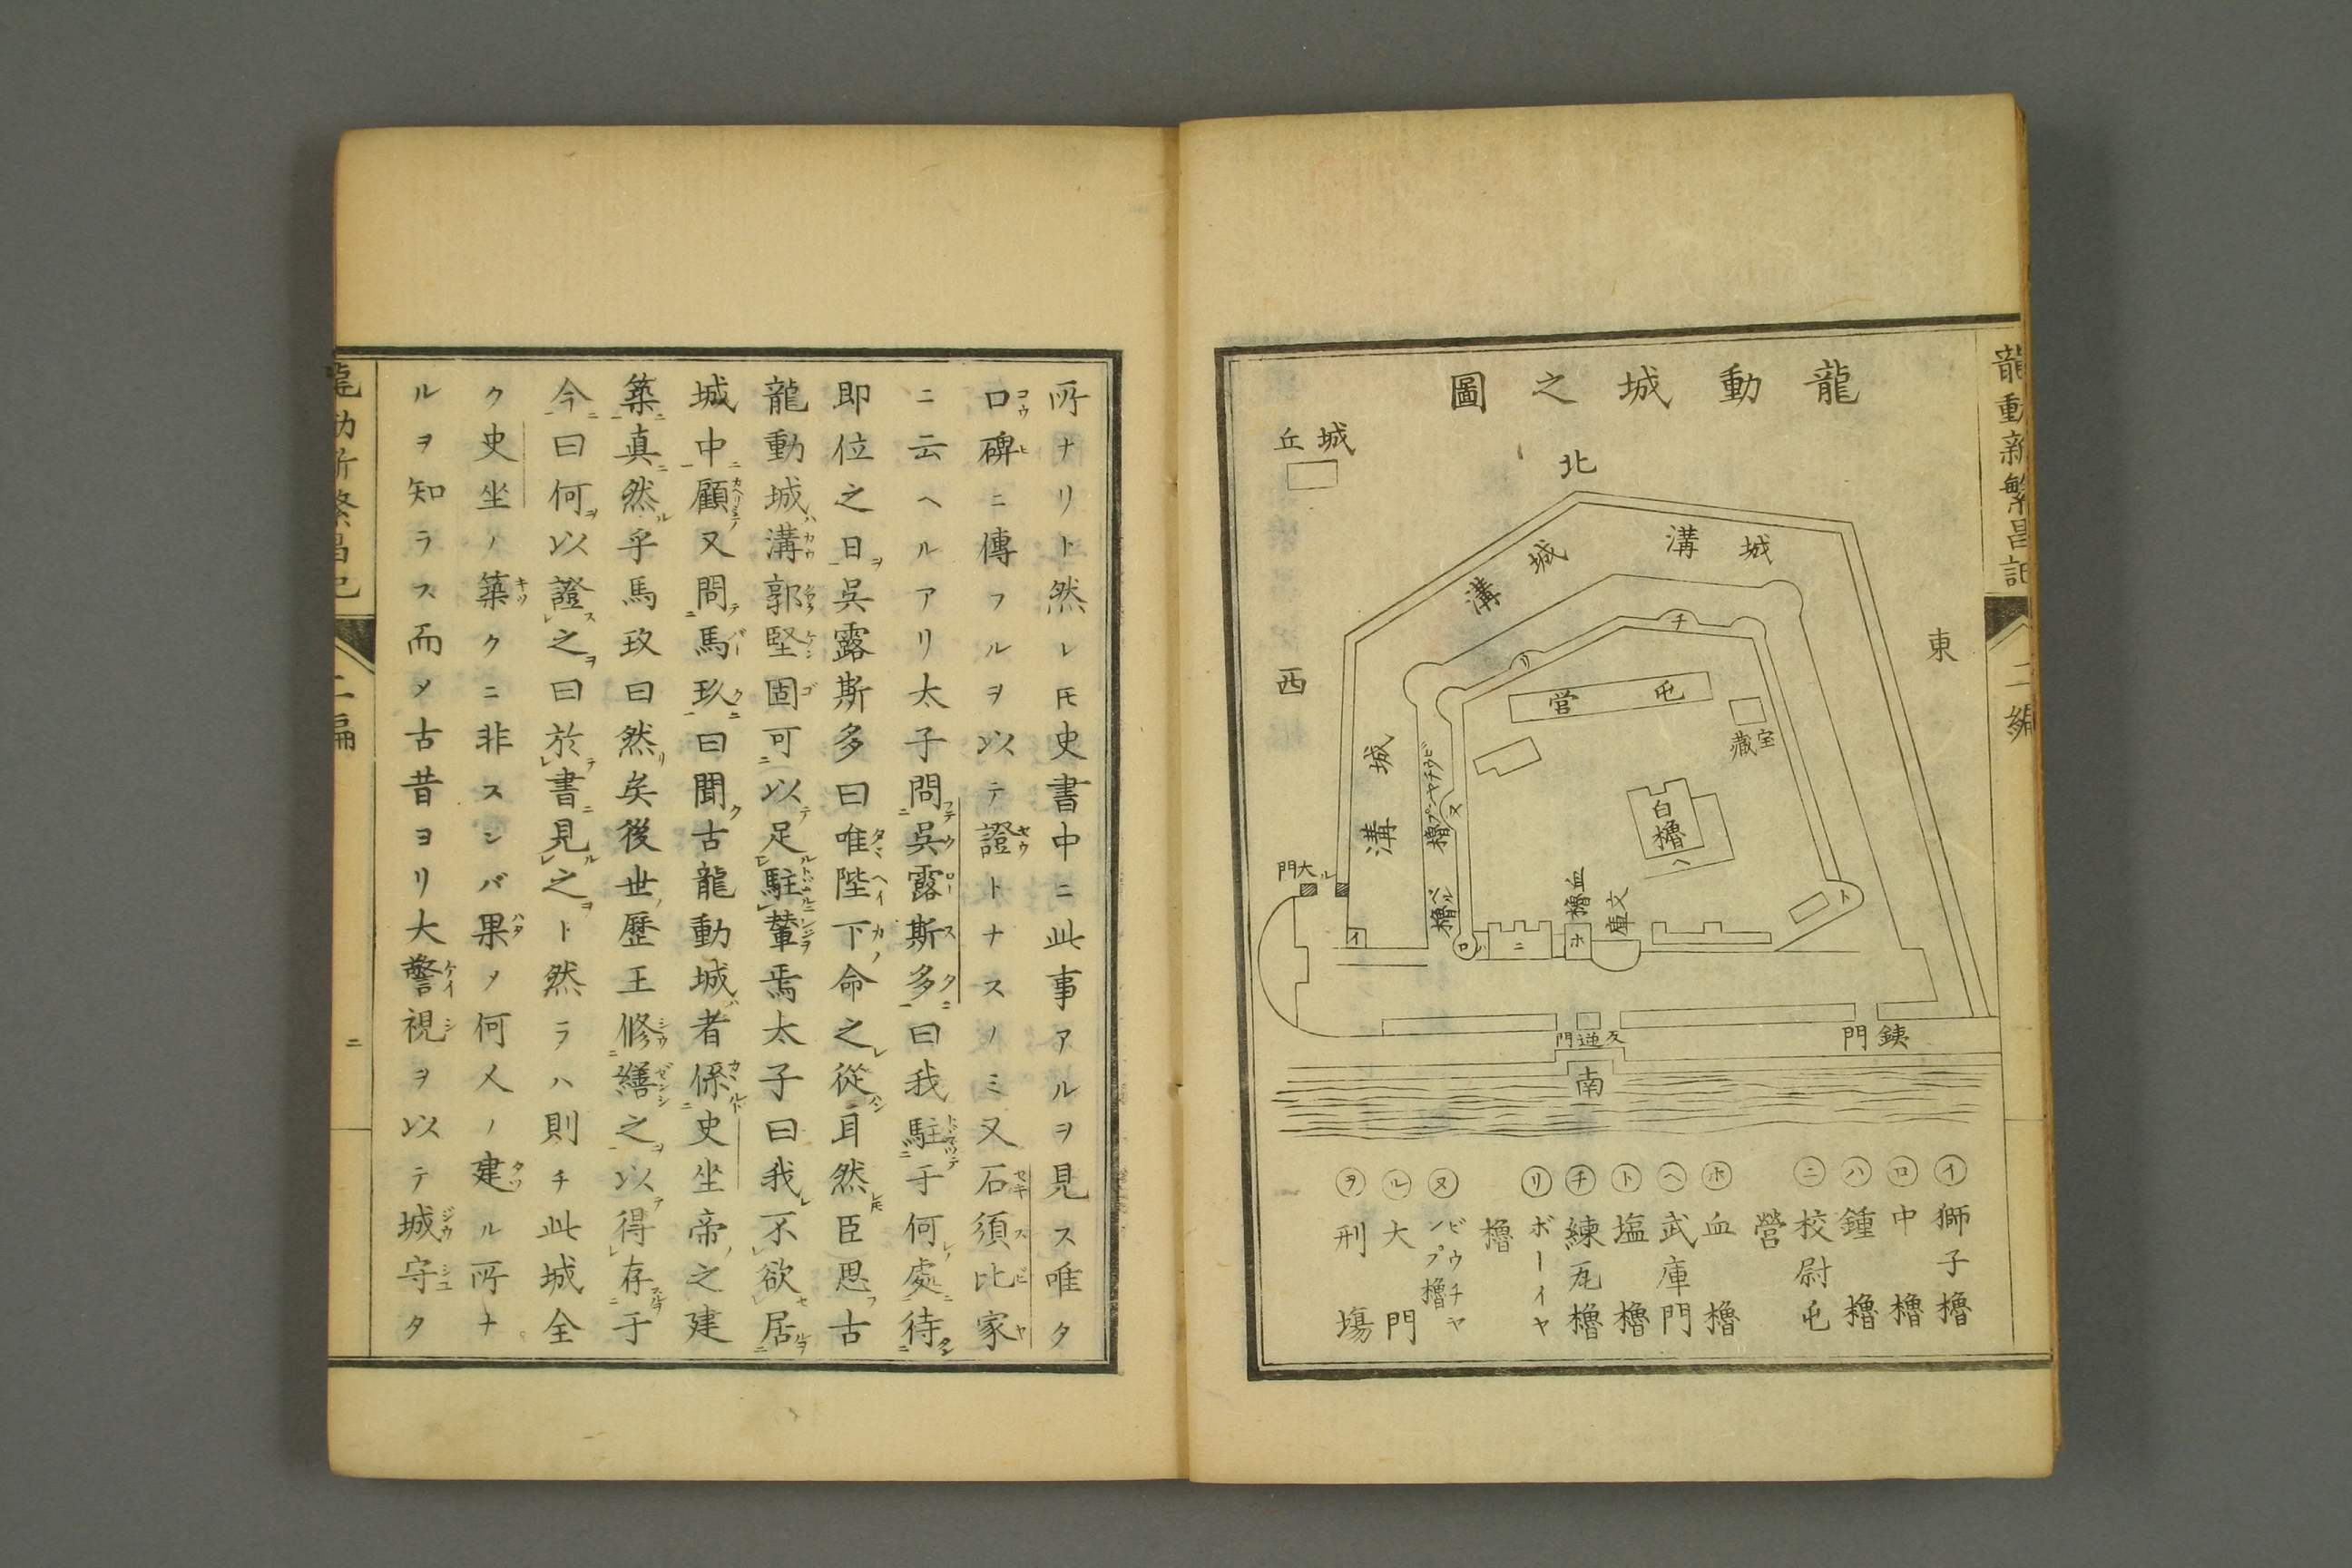 龍動新繁昌記
二編
龍動城之圖
北
東
西
南
城丘
城溝
城溝
城溝
チ
リ
屯営
宝蔵
白櫓
ヘ
ビウチヤンプ櫓
ヌ
ハル櫓
大門
ル
イ
ロ
ハ
ニ
ホ
血櫓
文庫
ト
反逆門
鉄門
イ 獅子櫓
ロ 中櫓
ハ 鍾櫓
ニ 校尉屯
營
ホ 血櫓
ヘ 武庫門
ト 塩櫓
チ 練瓦櫓
リ ボーイヤ
櫓
ヌ ビウチヤンプ櫓
ル 大門
ヲ 刑塲
所ナリト然レ𪜈史書中ニ此事アルヲ見ス唯タ
口碑ニ傳フルヲ以テ證トナスノミ又石須比家
ニ云ヘルアリ太子問呉露斯多曰我駐于何處待
即位之日呉露斯多曰唯陛下命之從耳然臣思古
龍動城溝郭堅固可以足駐輦焉太子曰我不欲居
城中顧又問馬玖曰聞古龍動城者係史坐帝之建
築真然乎馬玖曰然矣後世歴王修繕之以得存于
今曰何以證之曰於書見之ト然ラハ則チ此城全
ク史坐ノ築クニ非スンバ果メ何人ノ建ル所ナ
ルヲ知ラス而メ古昔ヨリ大警視ヲ以テ城守タ
龍動新繁昌記
二編
二